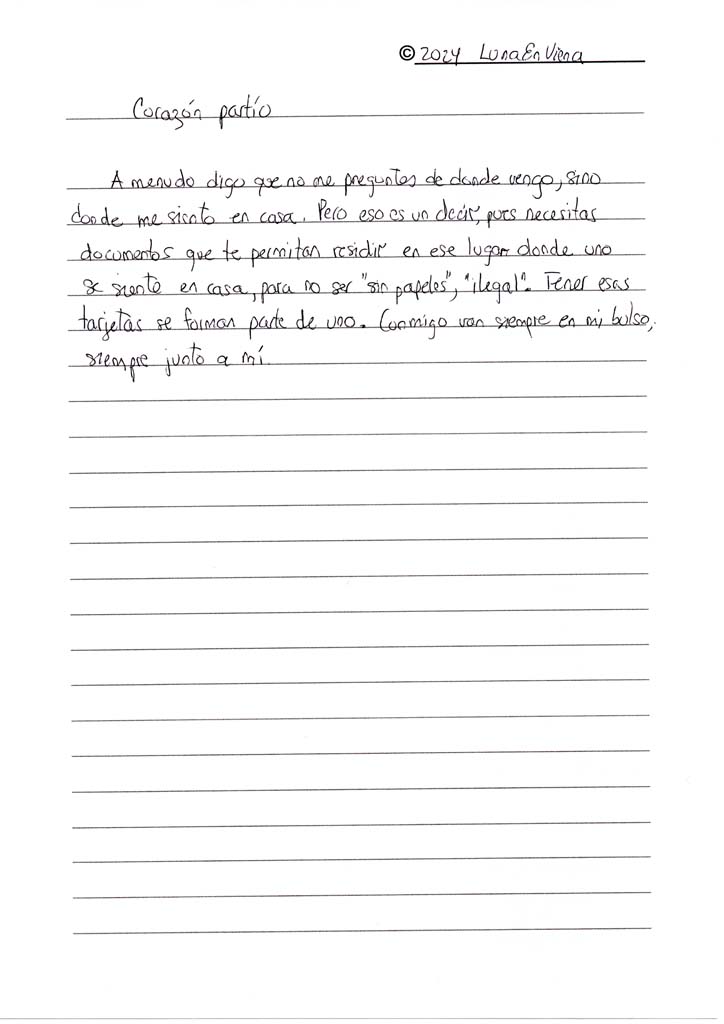 © 2024 LunaEnViena
Corazón partío
A menudo digo que no me preguntes de donde vengo, sino
donde me siento en casa. Pero eso es un decir, pues necesitas
documentos que te permitan residir en ese lugar donde uno
se siente en casa, para no ser "sin papeles", "ilegal". Tener esas
tarjetas se forman parte de uno. Conmigo van siempre en mi bolso,
siempre junto a mí.